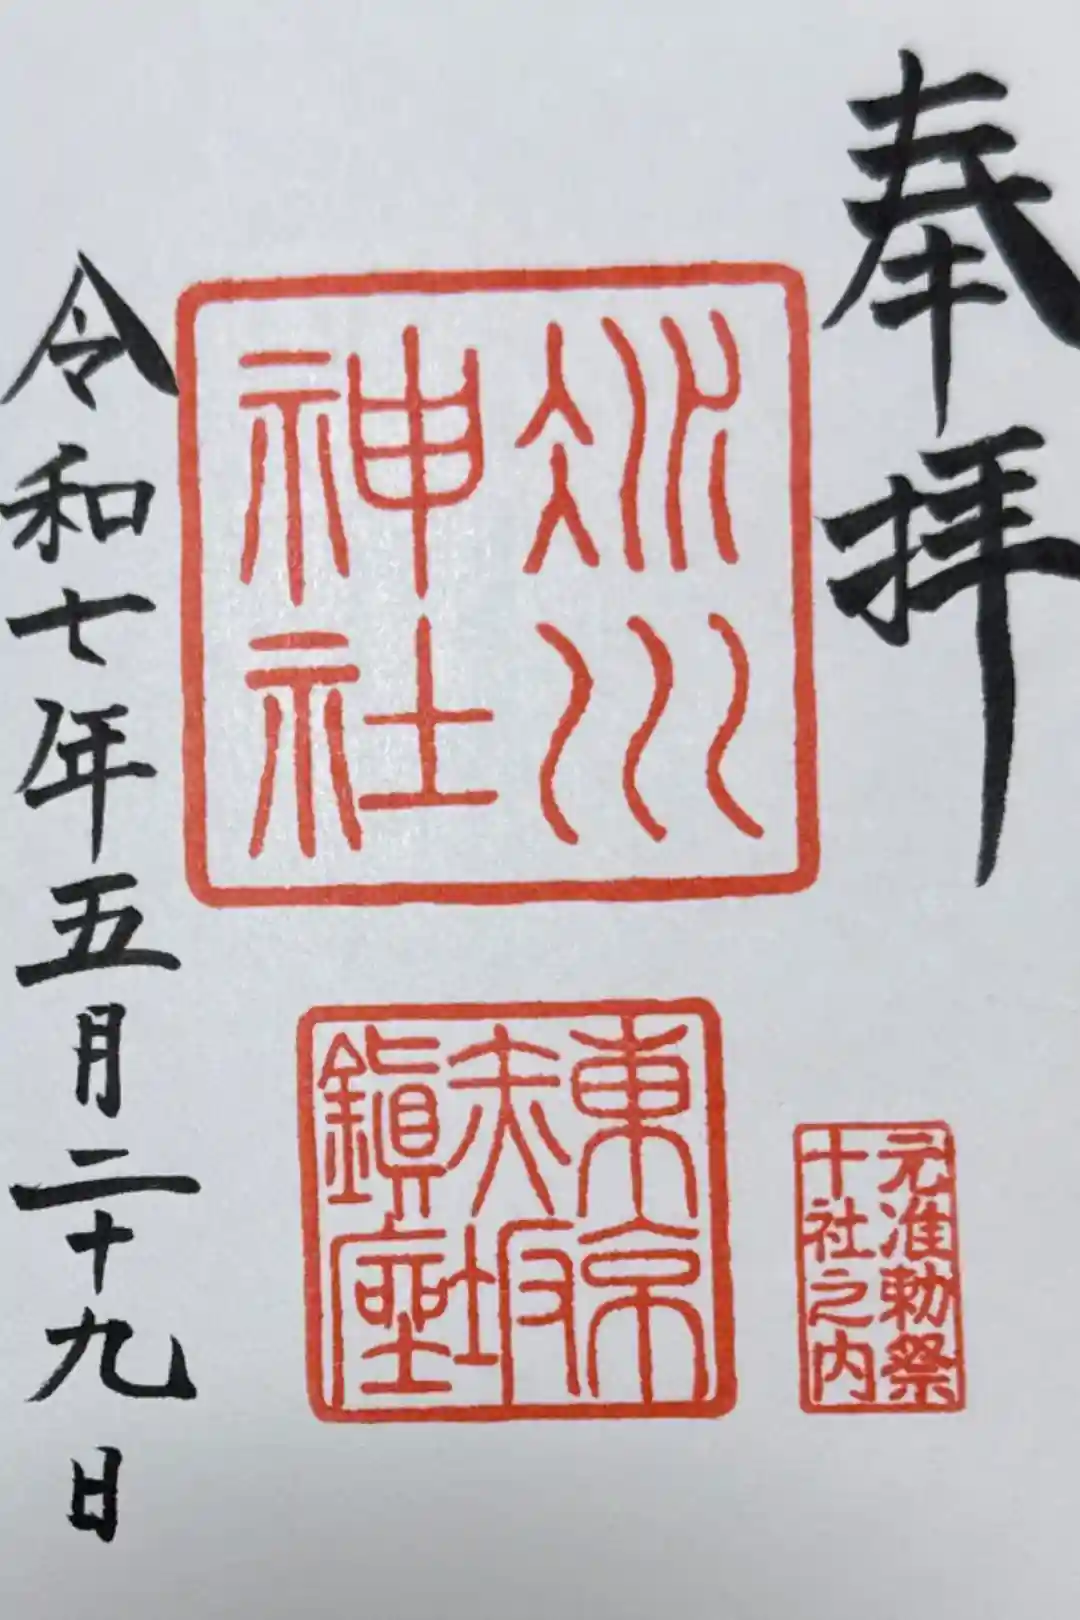 奉拝
氷川
神社
東京
赤坂
鎮座
元准勅祭
十社之内
令和七年五月二十九日